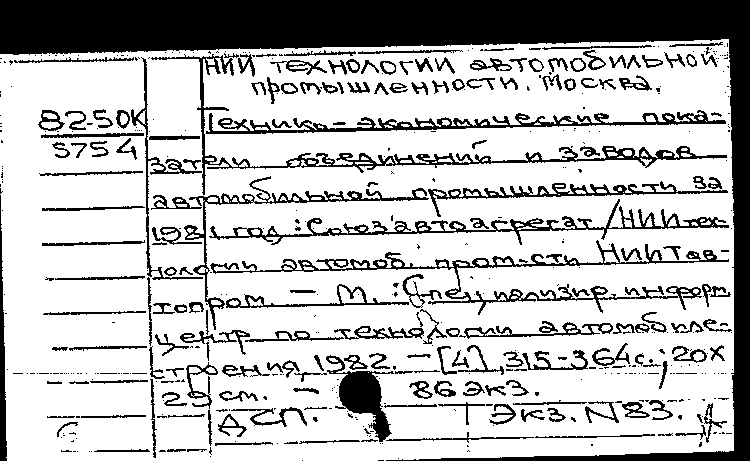 НИИ технологии автомобильной
промышленности. Москва.
82-50К
5754
Технико-экономические пока-
затели объединений и заводов
автомобильной промышленности за
1981 год: Союзавтоагрегат / НИИ тех-
нологии автомоб. пром-сти НИИТав-
топром. — М. : Специализир. информ
центр по технологии автомобиле-
строения, 1982. — [4], 315-364 с.; 20х
29 см. — 86 экз.
ДСП. Экз. N 83.